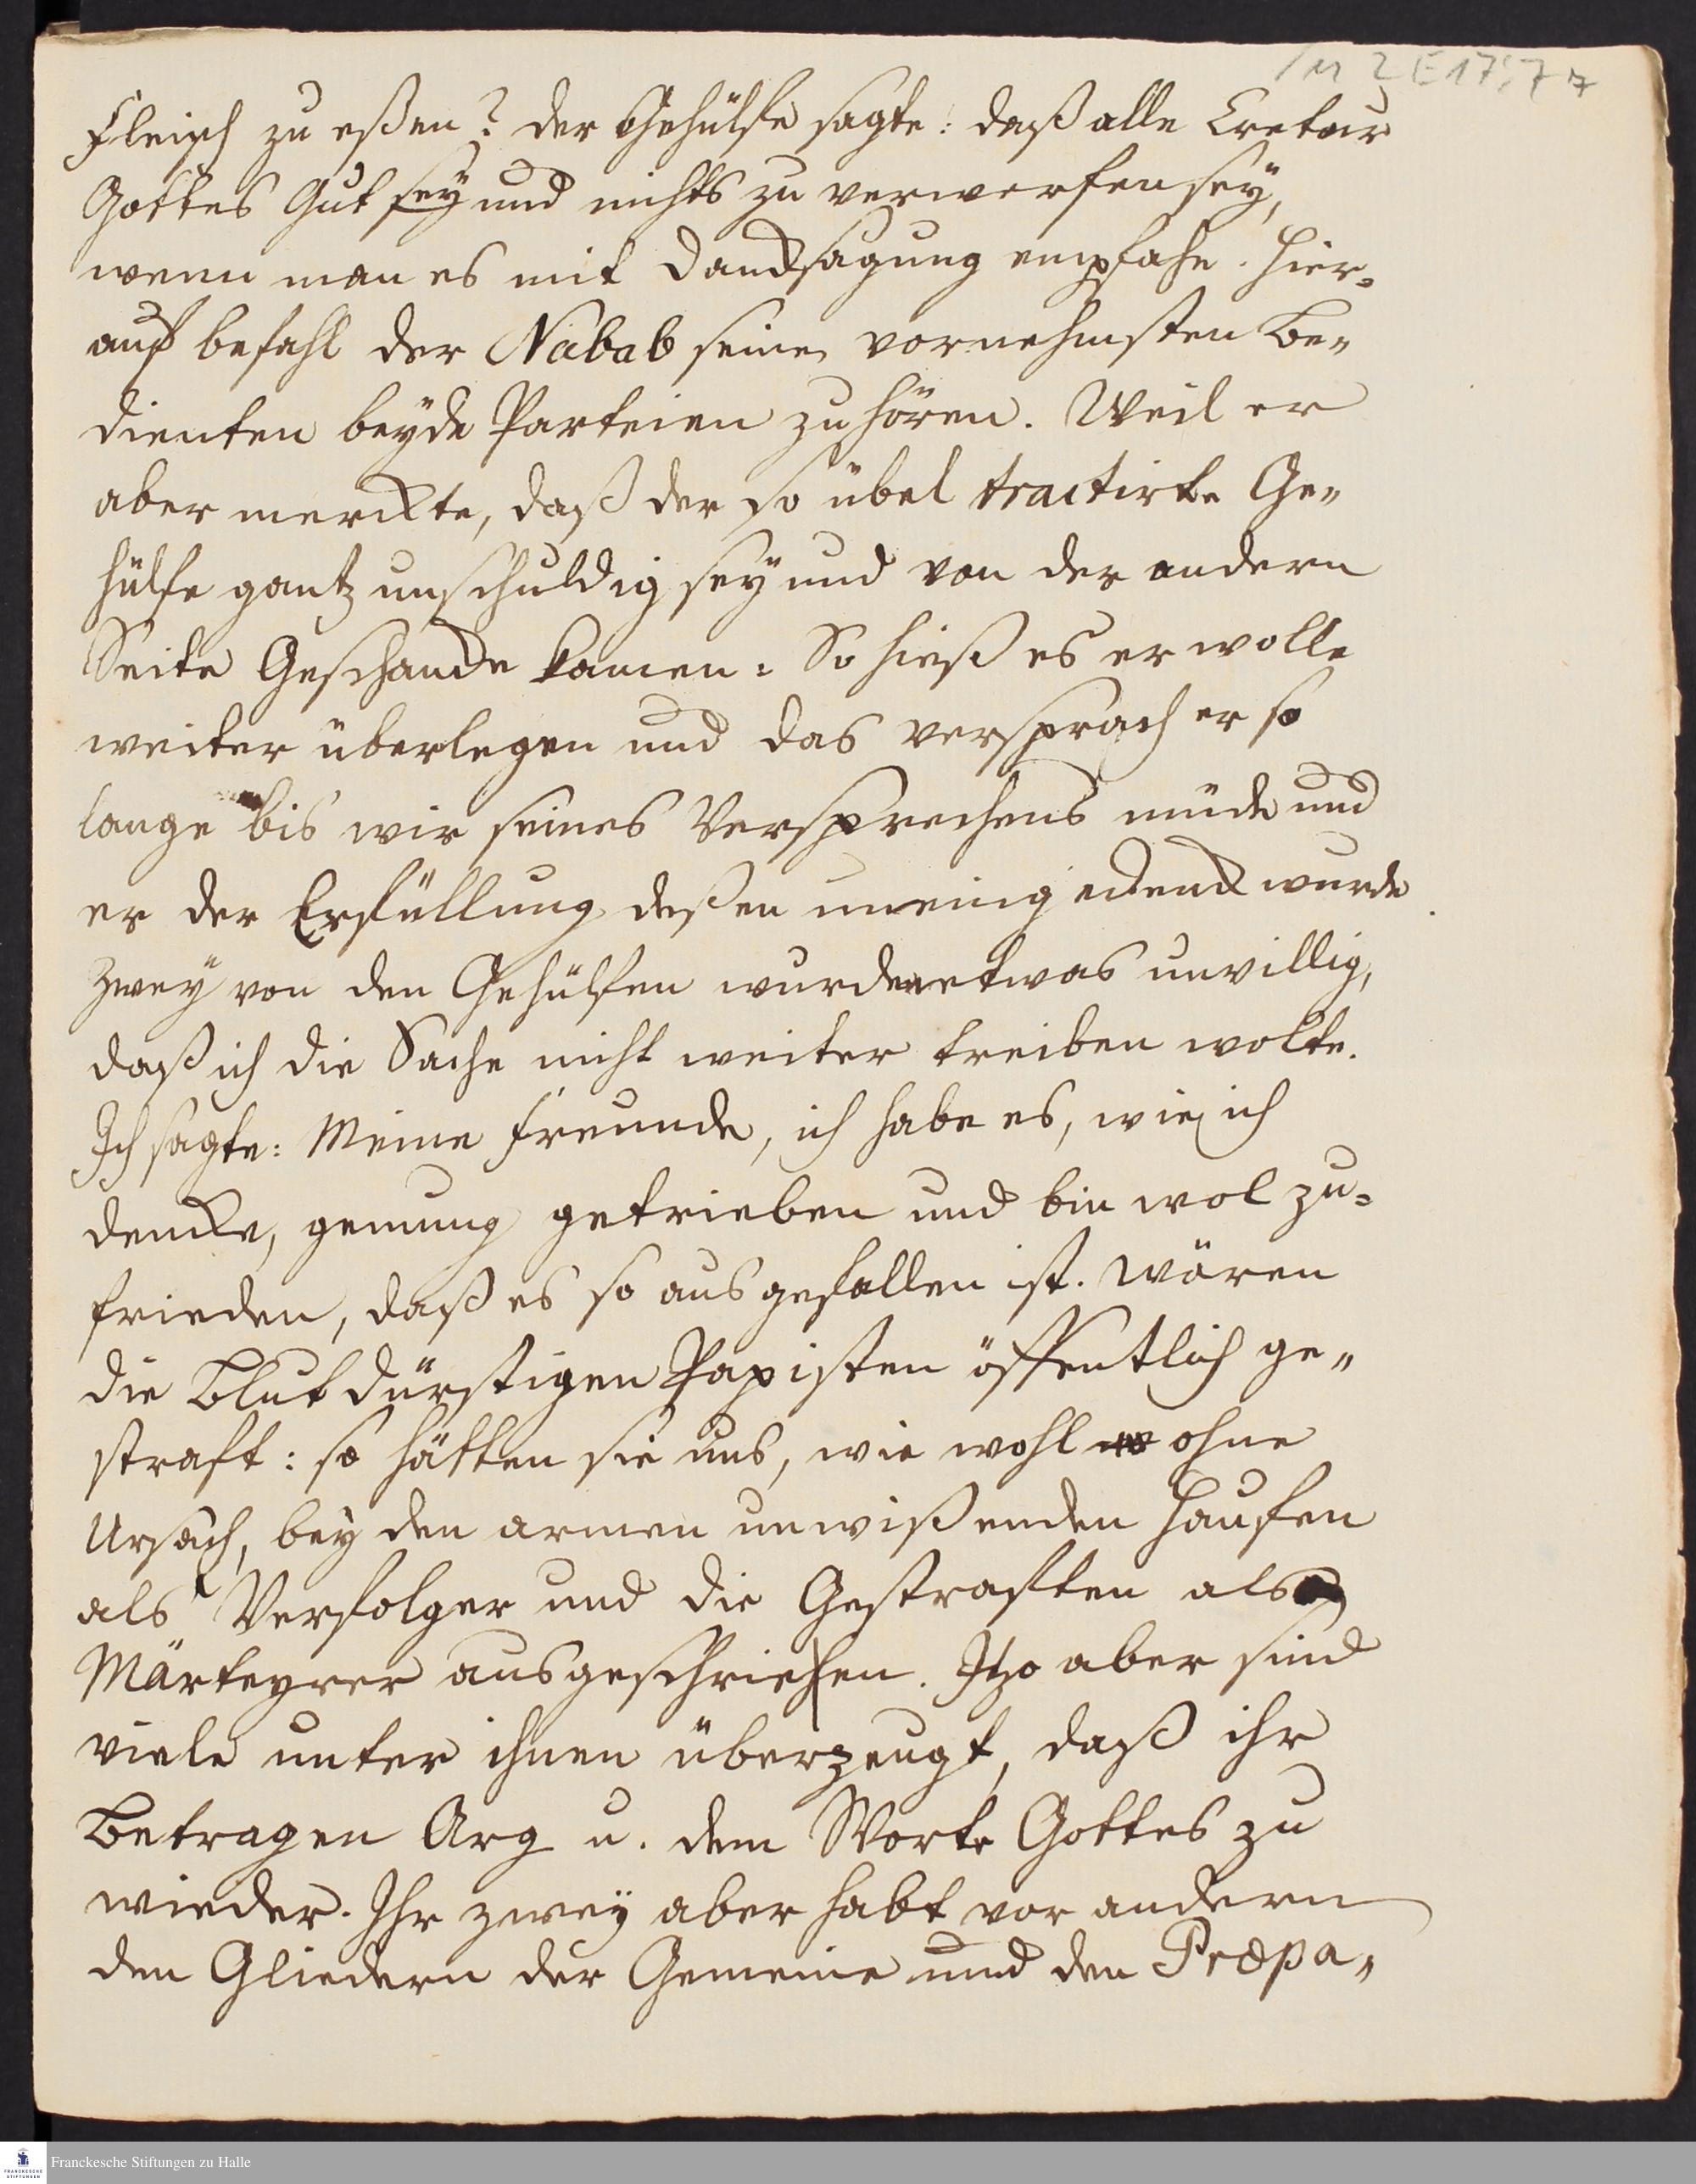 Fleisch zu eßen? der Gehülfe sagte: daß alle Cretur
Gottes Gut sey und nichts zu verwerfen sey,
wenn man es mit Dancksagung empfahe. Hier=
auf befahl der Nabab seine vornehmsten Be„
dienten beyde Parteien zu hören. Weil er
aber merckte, daß der so übel tractirte Ge„
hülfe gantz unschuldig sey und von der andern
Seite Geschancke kamen: So hieß es er wolle
weiter überlegen und das versprach er so
lange bis wir seines Versprechens müde und
er der Erfüllung deßen uneingedenck wurde.
Zwey von den Gehülfen wurden etwas unwillig,
daß ich die Sache nicht weiter treiben wolte.
Ich sagte: Meine Freunde, ich habe es, wie ich
dencke, genung getrieben und bin wol zu=
frieden, daß es so ausgefallen ist. Wären
die Blutdürstigen Papisten öffentlich ge„
straft: so hätten sie uns, wie wohl ohne
Ursach, bey den armen unwißenden Haufen
als Verfolger und die Gestraften als
Märteyrer ausgeschriehen. Itzo aber sind
viele unter ihnen überzeugt, daß ihr
Betragen Arg u. dem Worte Gottes zu
wieder. Ihr zwey aber habt vor andern
den Gliedern der Gemeine und den Præpa„
Franckesche Stiftungen zu Halle